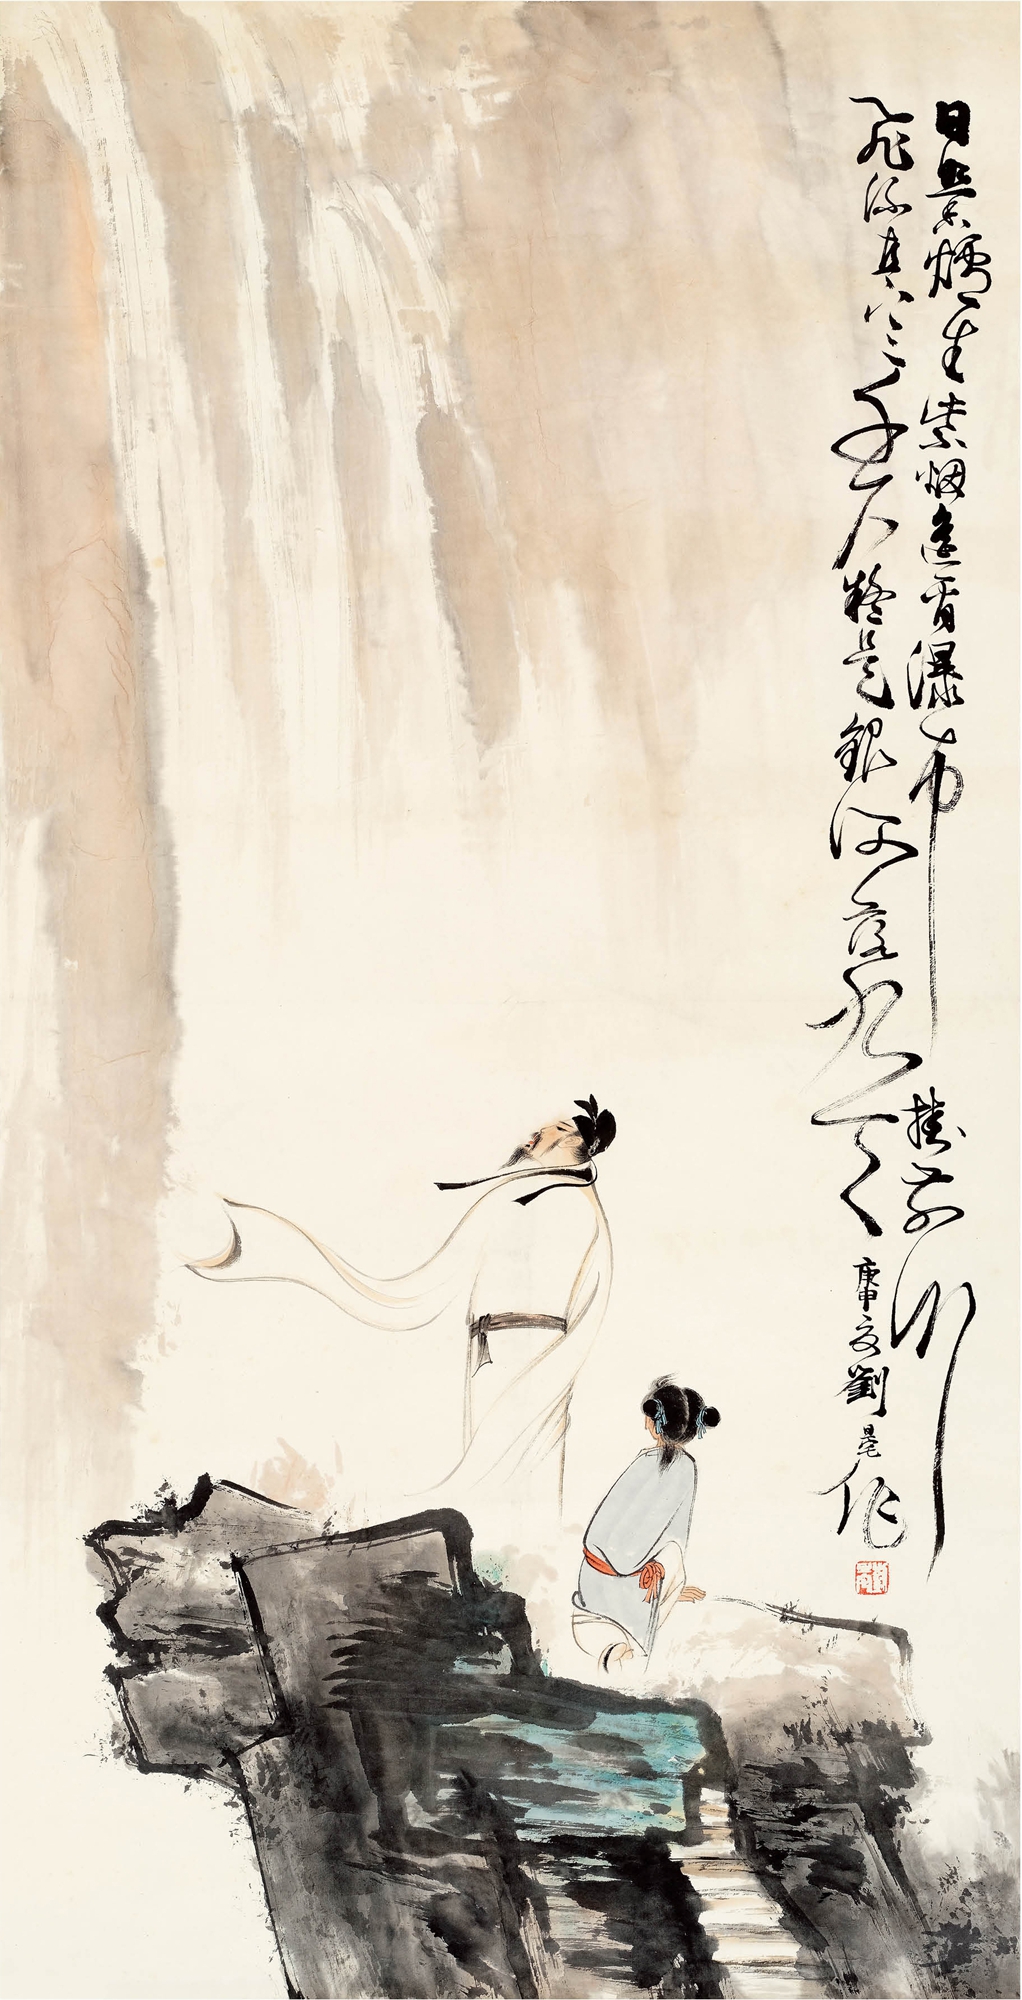 日照香爐生紫烟遙看瀑布掛前川
飛流直下三千尺疑是銀河落九天 庚申夏劉旦宅作